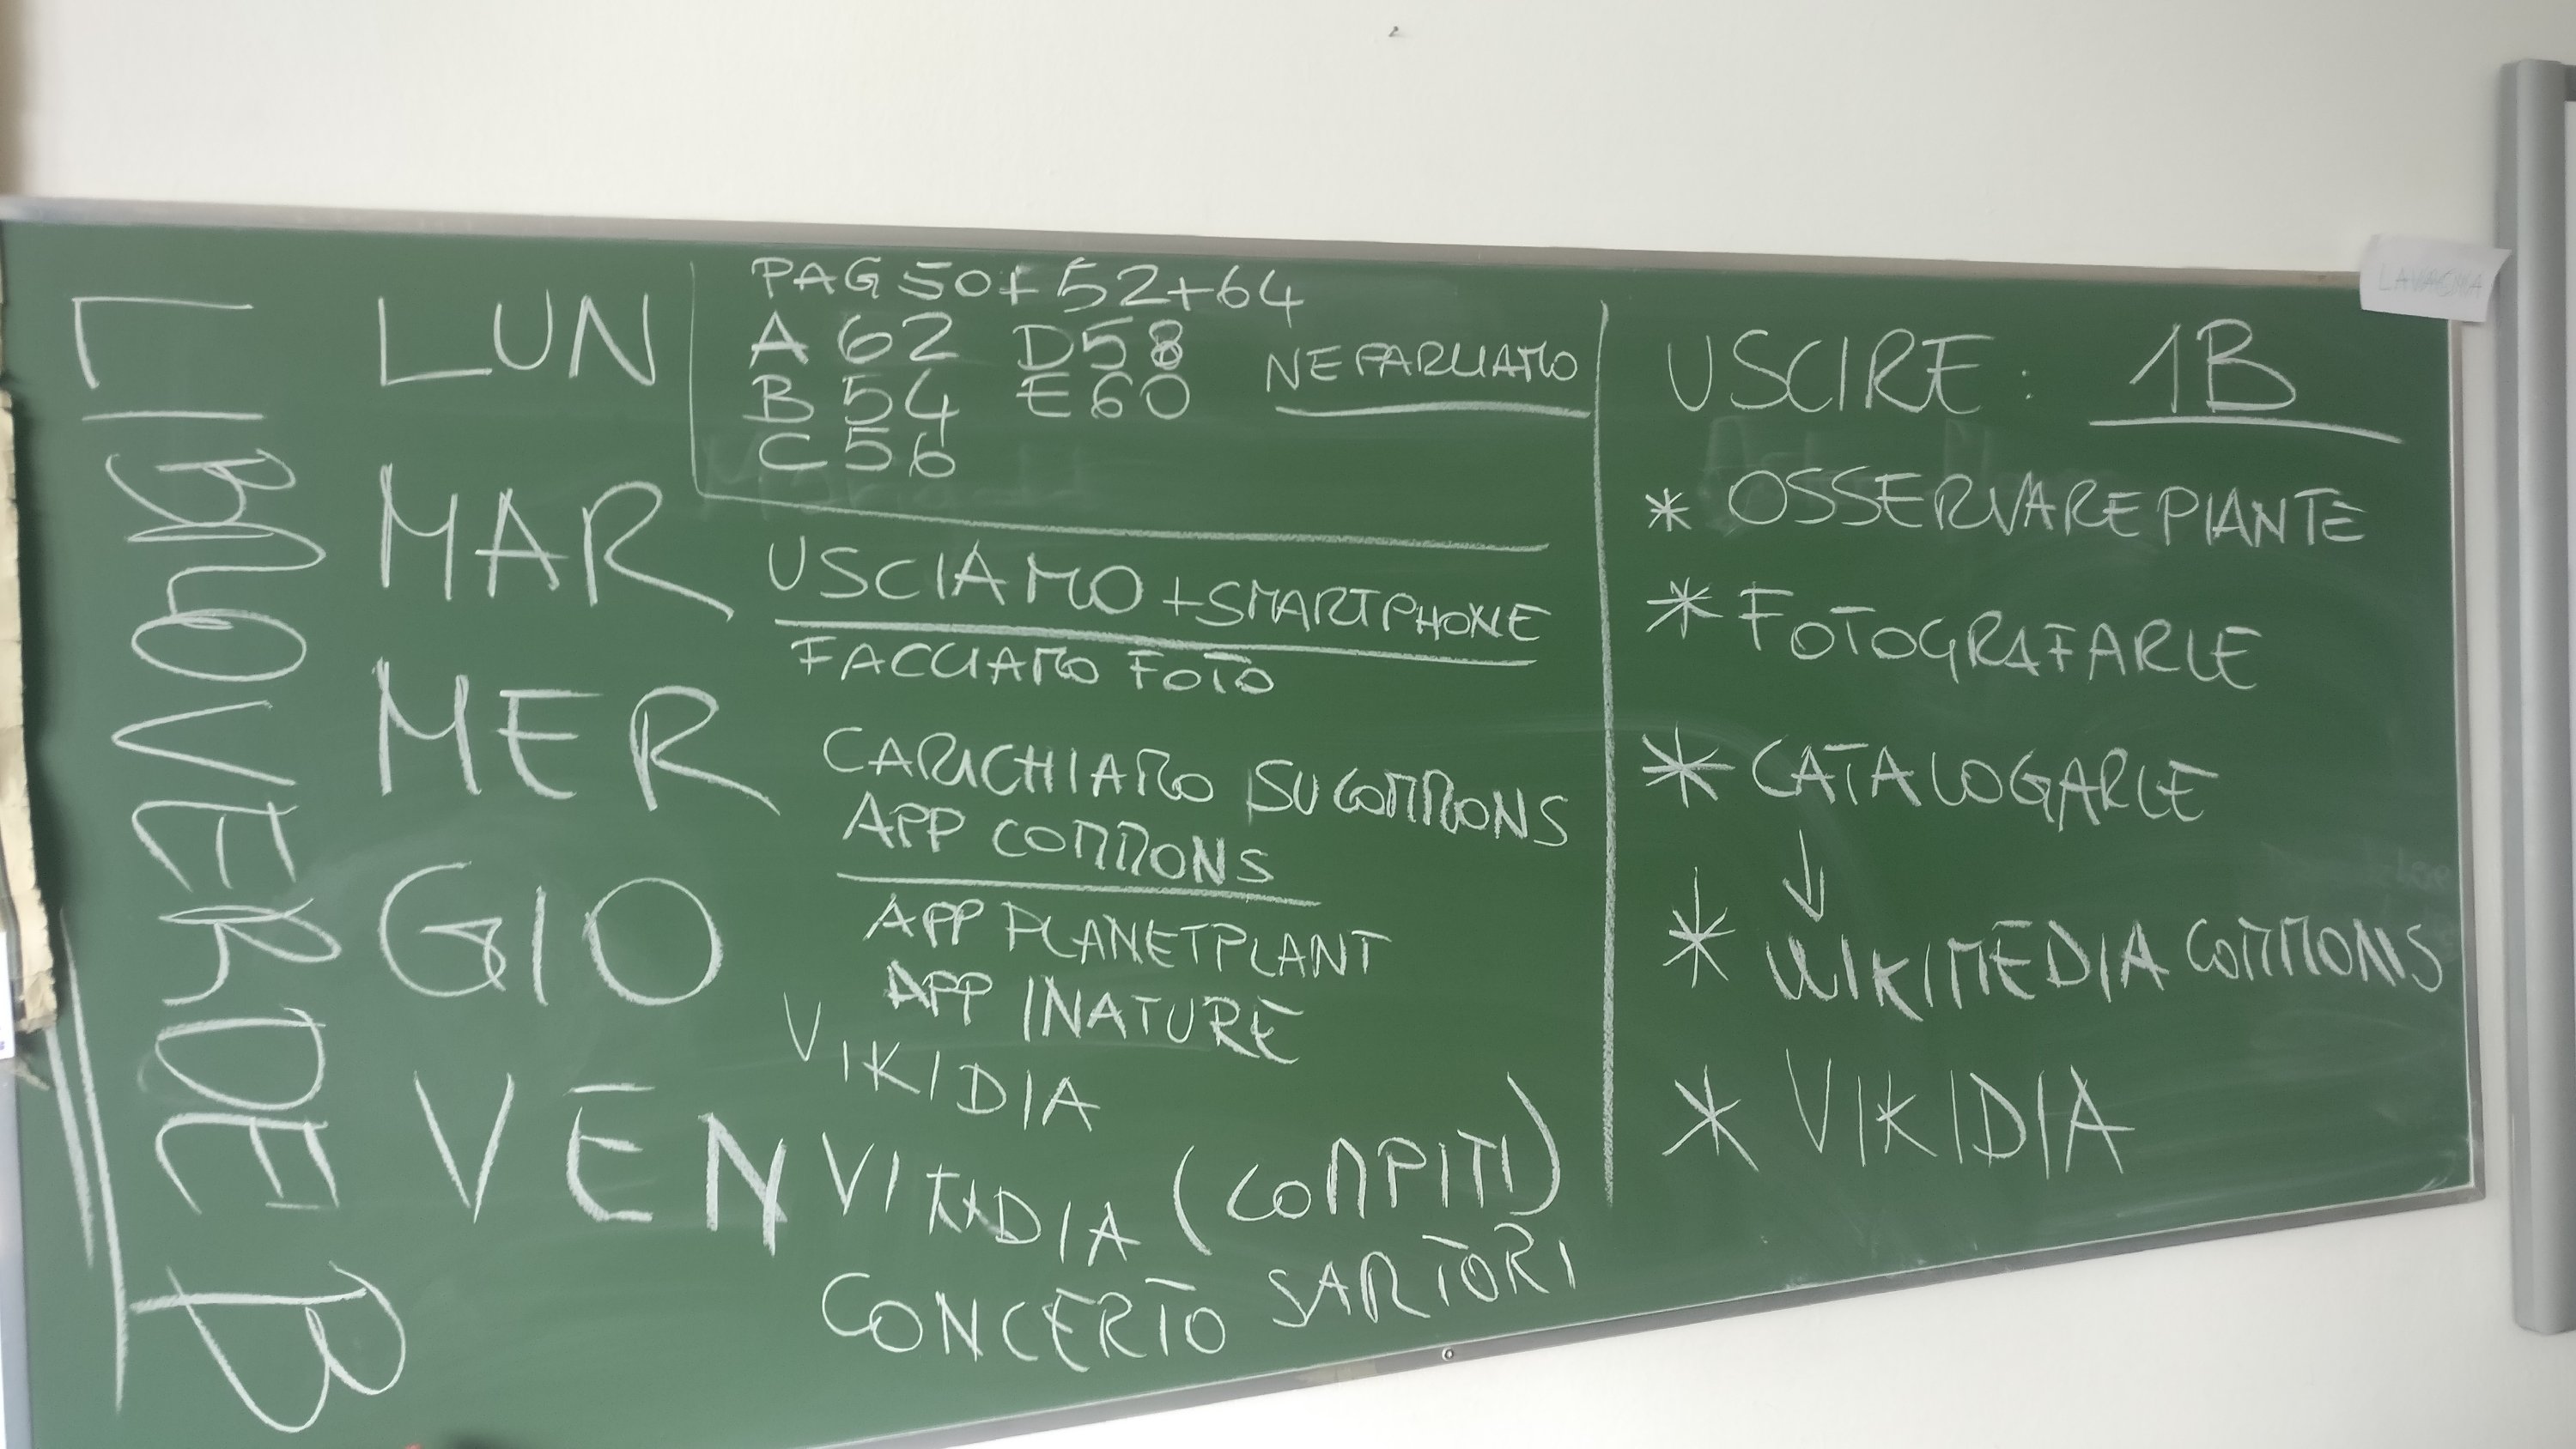 LIBRO VERDE B
LUN
PAG 50+52+64
A 62 D58
B 54 E60
C 56
NE PARLIAMO
MAR
USCIAMO + SMARTPHONE
FACCIAMO FOTO
MER
CARICHIAMO SU COMMONS
APP COMMONS
GIO
APP PLANETPLANT
APP INATURE
VIKIDIA
VEN
VIKIDIA (COMPITI)
CONCERTO SARTORI
USCIRE: 1B
* OSSERVARE PIANTE
* FOTOGRAFARLE
* CATALOGARLE
↓
* WIKIMEDIA COMMONS
* VIKIDIA
LAVAGNA